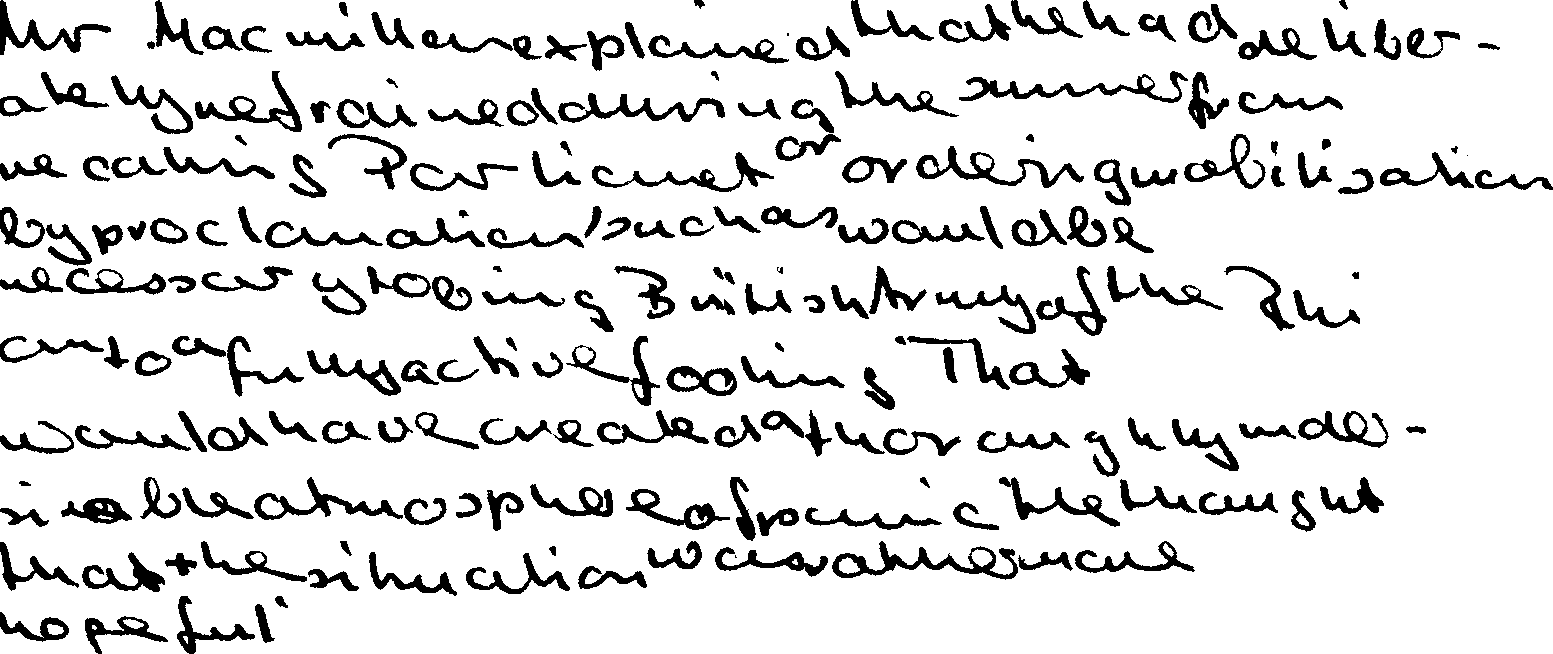 Mr Macmillan explained that he had deliber-
ately refrained during the summer from
recalling Parliament or ordering mobilisation
by proclamation, such as would be
necessary to bring British Army of the Rhi
on to a fully active footing. That
would have created a thoroughly unde-
sirable atmosphere of panic. He thought
that the situation was rather more
hopeful.